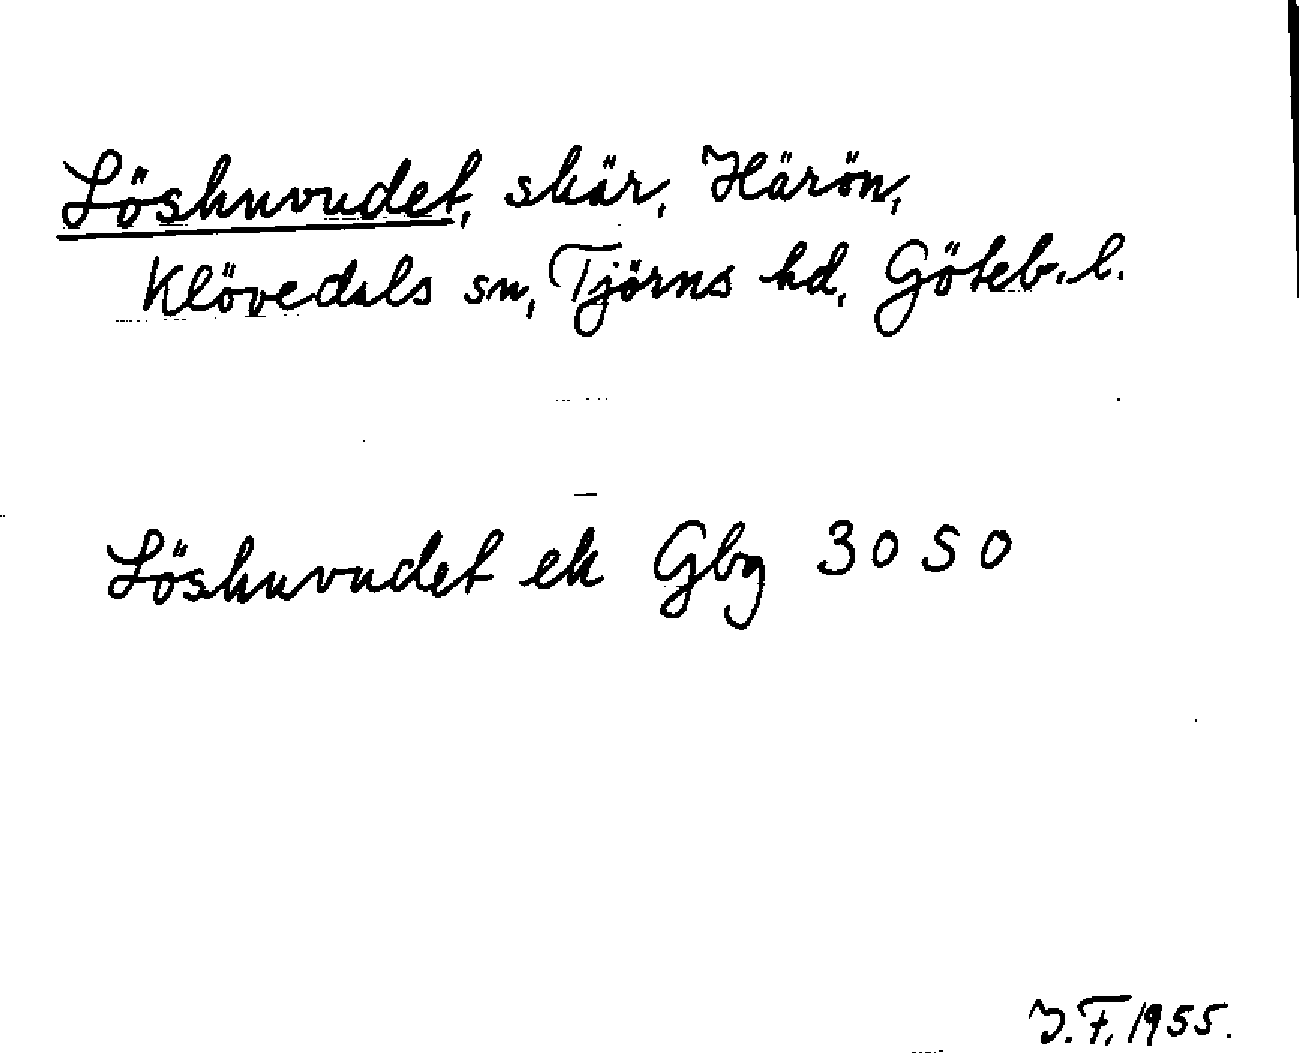 Löshuvudet, skär, Härön,
Klövedals sn, Tjörns hd, Göteb. l.
Löshuvudet ek Gbg 3050
J. F. 1955.